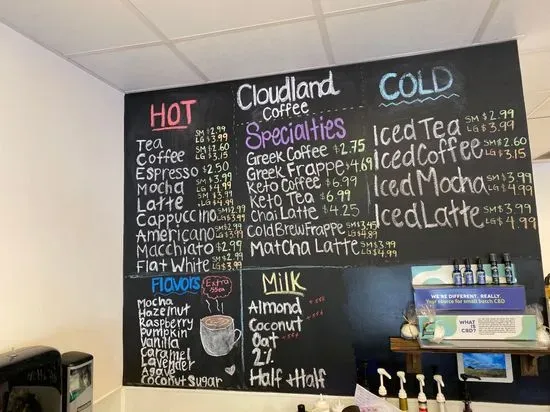 HOT
Tea SM $2.99
LG $3.99
Coffee SM $2.60
LG $3.15
Espresso $2.50
Mocha SM $3.99
LG $4.99
Latte SM $3.99
LG $4.99
Cappuccino SM $2.99
LG $3.99
Americano SM $2.99
LG $3.99
Macchiato $2.99
Flat White SM $2.99
LG $3.99
Cloudland
Coffee
Specialties
Greek Coffee $2.75
Greek Frappe $4.69
Keto Coffee $6.99
Keto Tea $6.99
Chai Latte $4.25
Cold Brew Frappe SM $3.45
LG $4.89
Matcha Latte SM $3.99
LG $4.99
COLD
Iced Tea SM $2.99
LG $3.99
Iced Coffee SM $2.60
LG $3.15
Iced Mocha SM $3.99
LG $4.99
Iced Latte SM $3.99
LG $4.99
Flavors
Extra
55¢
Mocha
Hazelnut
Raspberry
Pumpkin
Vanilla
Caramel
Lavender
Agave
Coconut Sugar
Milk
Almond +55¢
Coconut +55¢
Oat +55¢
2%
Half + Half
WE'RE DIFFERENT. REALLY.
Your source for small batch CBD
WHAT
IS
CBD?